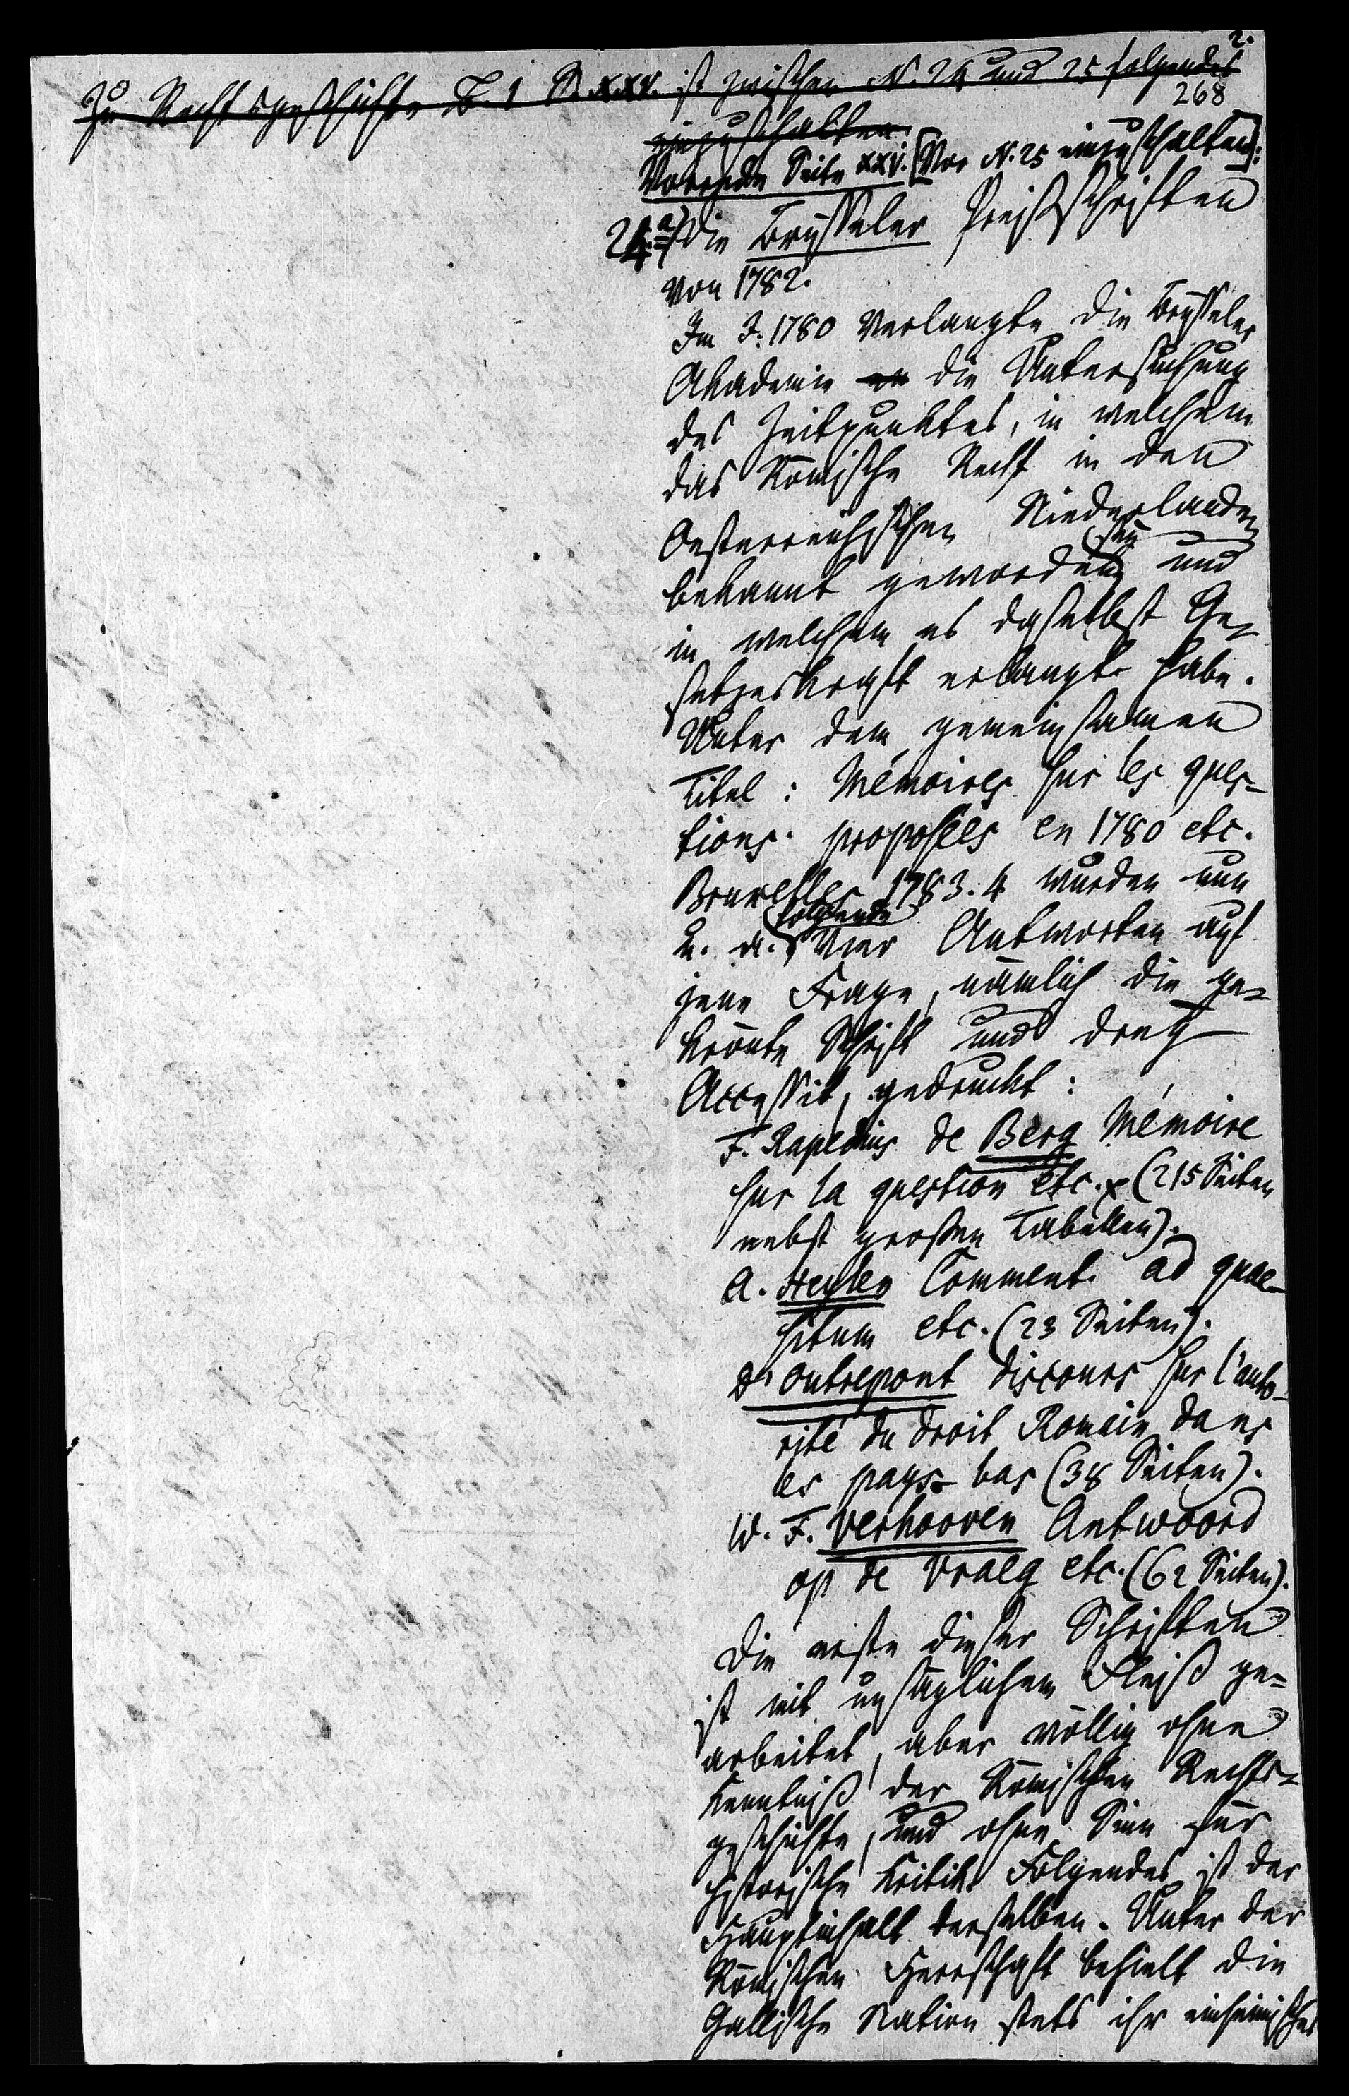 2.
Zu Rechtsgeschichte B. 1 S. XXV. ist zwischen N. 24 und 25 folgendes
268
einzuschalten.
Vorrede Seite XXV. [Vor N. 25 einzuschalten]:
24.a) Die Brysseler Preißschriften
von 1782.
Im J. 1780 verlangte die Brysseler
Akademie die Untersuchung
des Zeitpunktes, in welchem
das Römische Recht in den
Oesterreichischen Niederlanden
bekannt geworden sey und
in welchem es daselbst Ge-
setzeskraft erlangt habe.
Unter dem gemeinsamen
Titel: Mémoires sur les ques-
tions proposées en 1780 etc.
Bruxelles 1783. 4 wurden nun
u. a. folgende vier Antworten auf
jene Frage, nämlich die ge-
krönte Schrift und drey
Accessit, gedruckt:
F. Rapedius de Berg Mémoire
sur la question etc. (215 Seiten
nebst großen Tabellen).
A. Heylen Comment. ad quae-
situm etc. (23 Seiten).
d'Outrepont discours sur l'auto-
rité du droit Romain dans
les pays-bas (38 Seiten).
W. F. Verhoeven Antwoord
op de Vraeg etc. (62 Seiten).
Die erste dieser Schriften
ist mit unsäglichem Fleiß ge-
arbeitet, aber völlig ohne
Kenntniß der Römischen Rechts-
geschichte, und ohne Sinn für
historische Kritik. Folgendes ist der
Hauptinhalt derselben. Unter der
Römischen Herrschaft behielt die
Gallische Nation stets ihr einheimisches